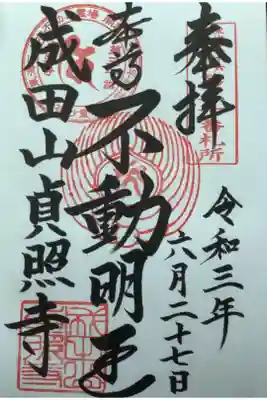 奉拝
令和三年
六月二十七日
本尊
不動明王
成田山貞照寺
番札所